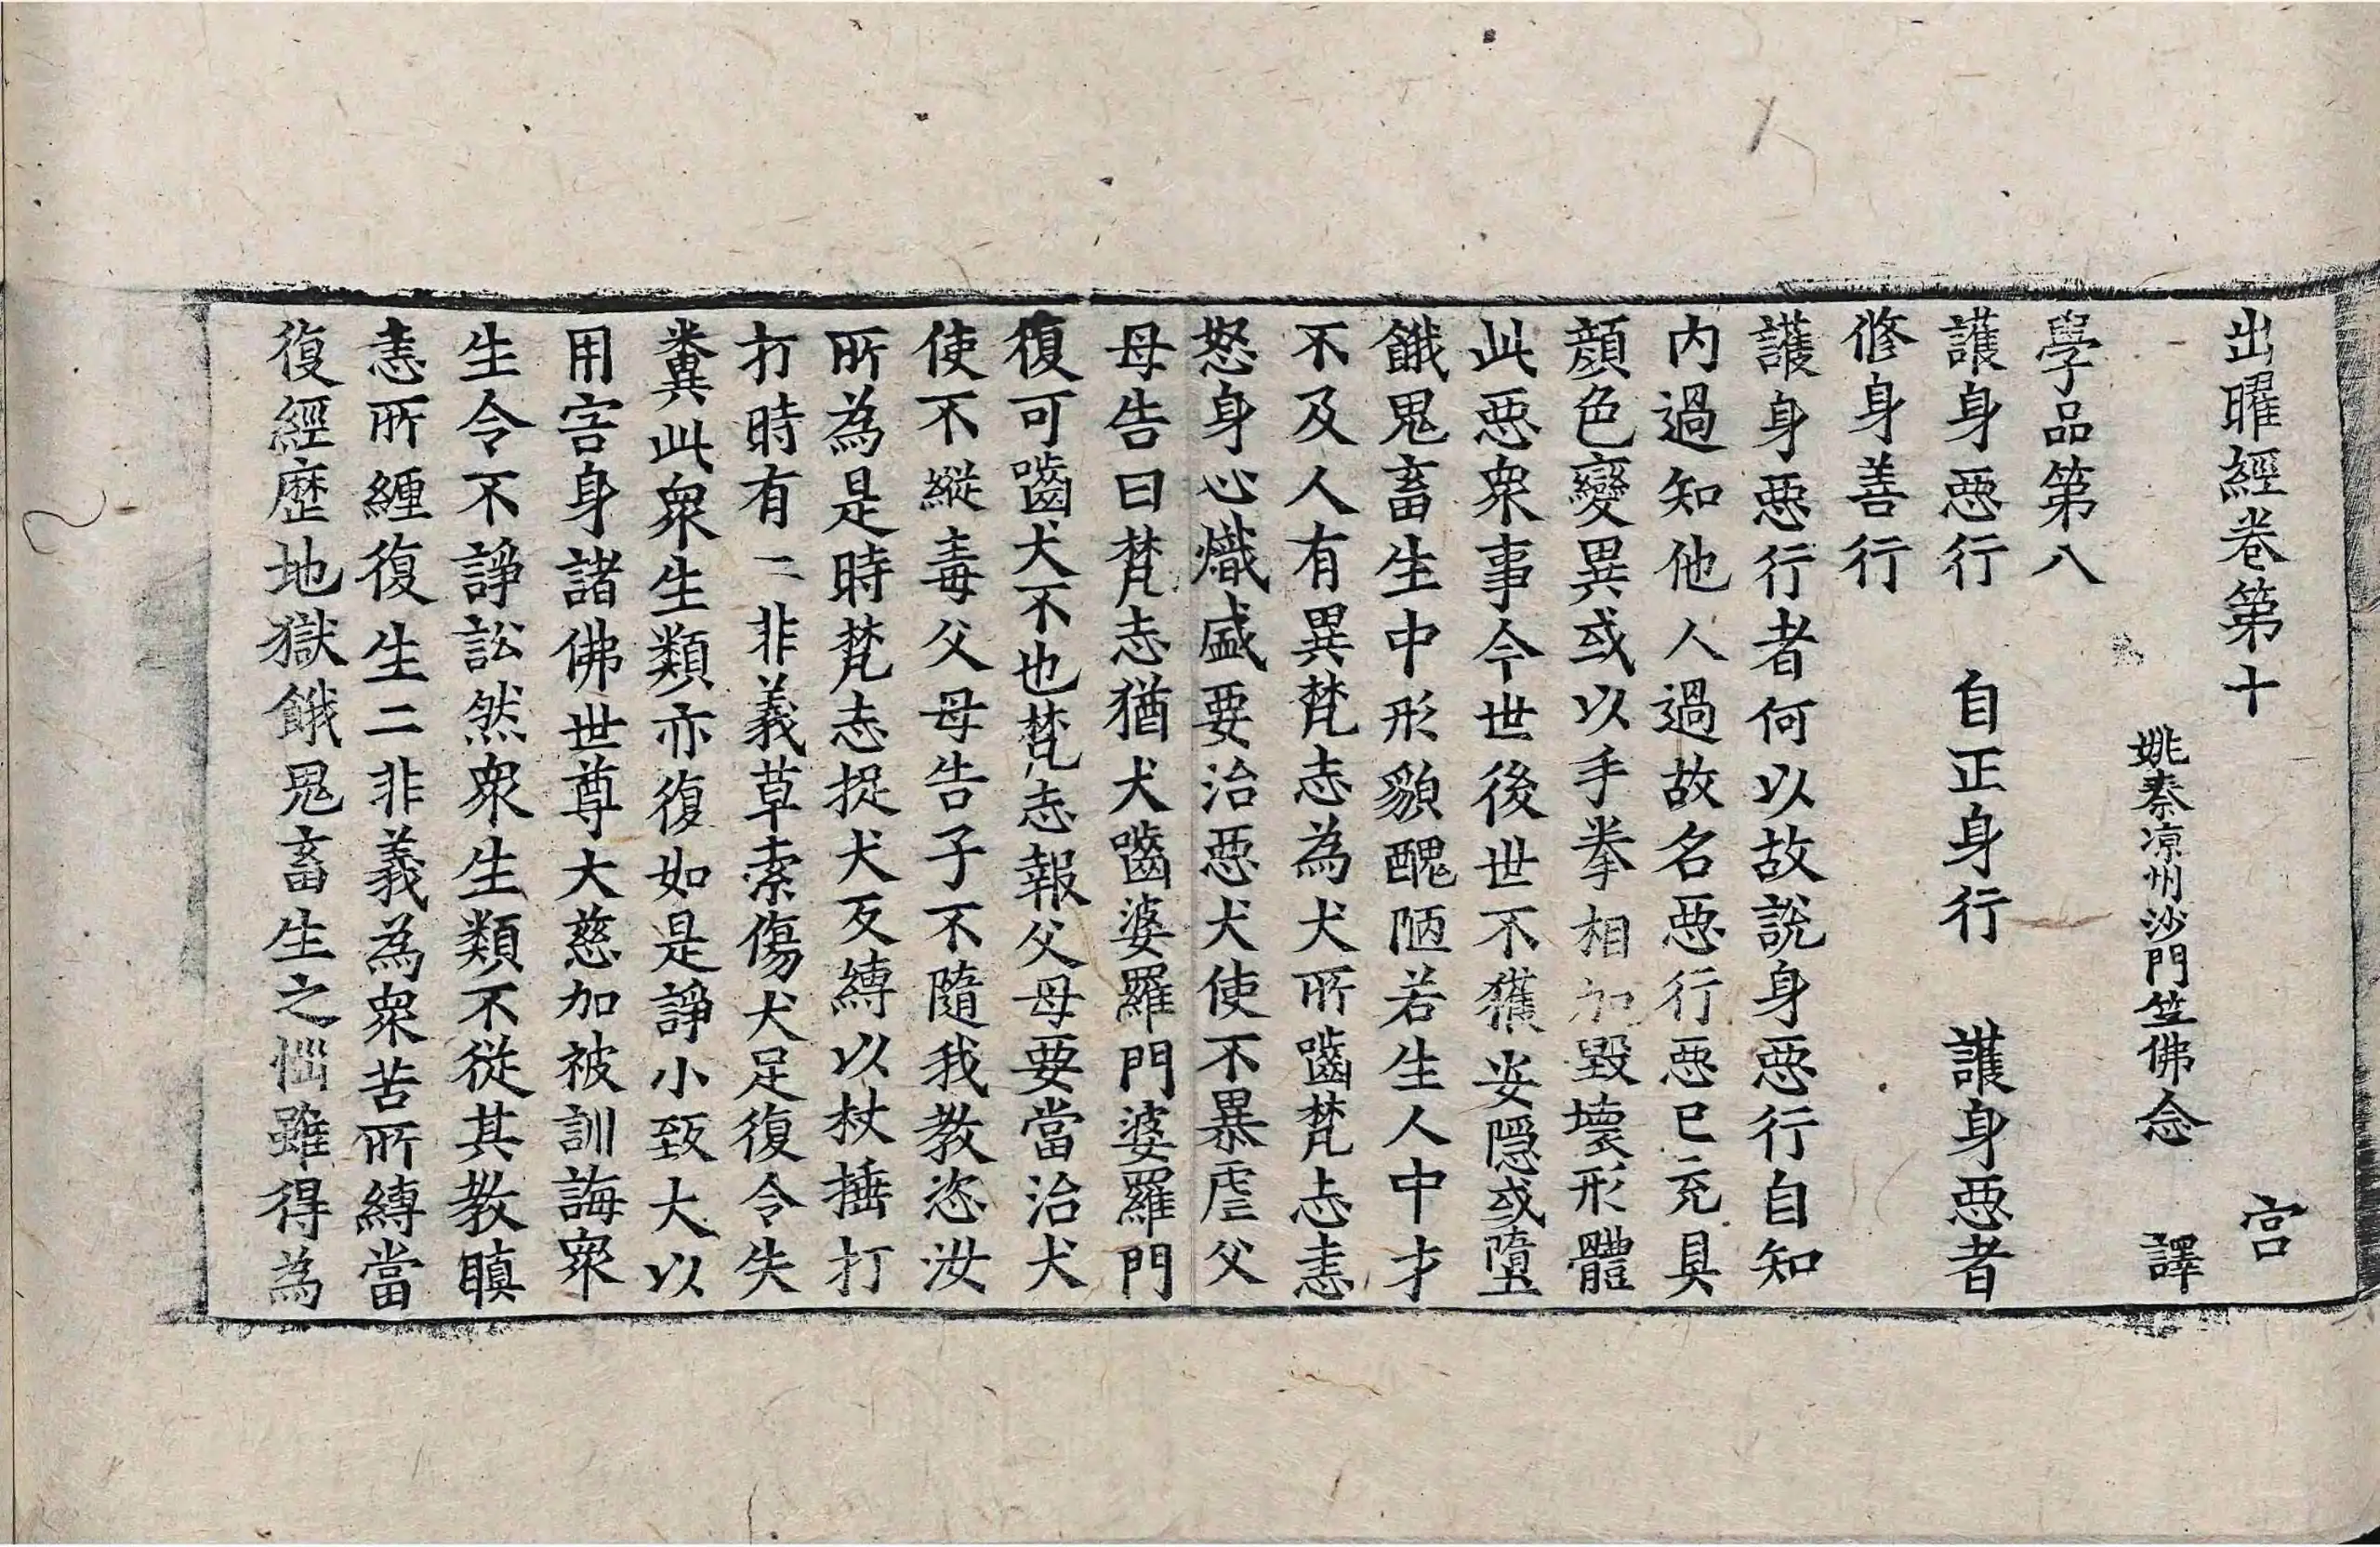 出曜經卷第十 宫
姚秦涼州沙門竺佛念 譯
學品第八
護身惡行 自正身行 護身惡者
修身善行
護身惡行者何以故說身惡行自知
内過知他人過故名惡行惡已充具
顏色變異或以手拳相加毀壞形體
此惡衆事今世後世不獲安隱或墮
餓鬼畜生中形貌醜陋若生人中才
不及人有異梵志為犬所嚙梵志恚
怒身心熾盛要治惡犬使不暴虐父
母告曰梵志猶犬嚙婆羅門婆羅門
復可嚙犬不也梵志報父母要當治犬
使不縱毒父母告子不隨我教恣汝
所為是時梵志捉犬反縛以杖捶打
打時有二非義草索傷犬足復令失
糞此衆生類亦復如是諍小致大以
用害身諸佛世尊大慈加被訓誨衆
生令不諍訟然衆生類不從其教瞋
恚所纏復生二非義為衆苦所縛當
復經歷地獄餓鬼畜生之惱雖得為